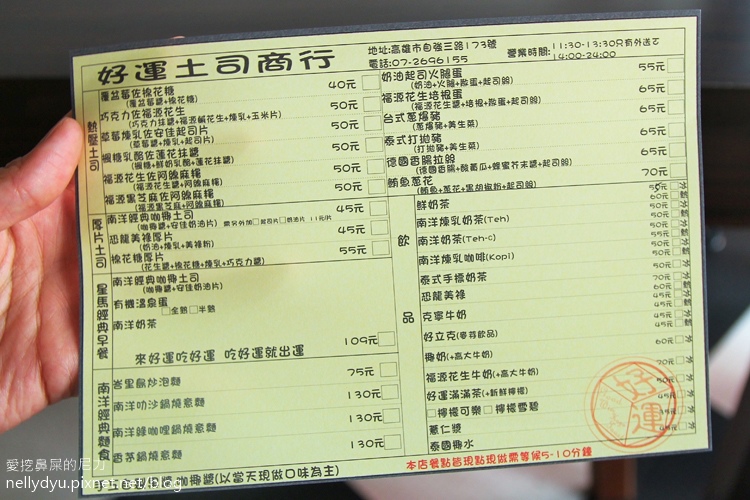 好運土司商行
地址:高雄市自強三路173號
電話:07-2696155
營業時間:11:30-13:30只有外送で
14:00-24:00
熱壓土司
覆盆莓佐棉花糖 40元
(覆盆莓醬+棉花糖)
巧克力佐福源花生 50元
(巧克力抹醬+福源鹹花生+煉乳+玉米片)
草莓煉乳佐安佳起司片 50元
(草莓醬+煉乳+起司片)
楓糖乳酪佐蓮花抹醬 50元
(楓糖+鮮奶乳酪+蓮花抹醬)
福源花生佐阿嬤麻糬 50元
(福源花生醬+阿嬤麻糬)
福源黑芝麻佐阿嬤麻糬 50元
(福源黑芝麻醬+阿嬤麻糬)
厚片土司
南洋經典咖椰土司 45元
(咖椰醬+安佳奶油片)
恐龍美祿厚片 45元
(奶油+煉乳+美祿粉)
棉花糖厚片 55元
(花生醬+棉花糖+煉乳+巧克力醬)
星馬經典早餐
南洋經典咖椰土司
(咖椰醬+安佳奶油片)
有機溫泉蛋
□全熟□半熟
南洋奶茶
109元
來好運吃好運 吃好運就出運
南洋經典麵食
峇里島炒泡麵 75元
南洋叻沙鍋燒意麵 130元
南洋綠咖哩鍋燒意麵 130元
香茅鍋燒意麵 130元
奶油起司火腿蛋 55元
(奶油+火腿+散蛋+起司絲)
福源花生培根蛋 65元
(福源花生醬+培根+散蛋+起司絲)
台式蔥爆豬 65元
(蔥爆豬+美生菜)
泰式打拋豬 65元
(打拋豬+美生菜)
德國香腸拉絲 65元
(德國香腸+酸黃瓜+蜂蜜芥末醬+起司絲)
鮪魚蔥花 70元
(鮪魚+蔥花+黑胡椒粉+起司絲)
飲品
鮮奶茶
南洋煉乳奶茶(Teh)
南洋奶茶(Teh-c)
南洋煉乳咖啡(Kopi)
泰式手標奶茶
恐龍美祿
克寧牛奶
好立克(麥芽飲品)
椰奶(+高大牛奶)
福源花生牛奶(+高大牛奶)
好運滿滿茶(+新鮮檸檬)
□檸檬可樂 □檸檬雪碧
薏仁漿
泰國椰水
好運
咖椰醬(以當天現做口味為主)
本店餐點皆現點現做需等候5-10分鐘
愛挖鼻屎的尼力
nellydyu.pixnet.net/blog